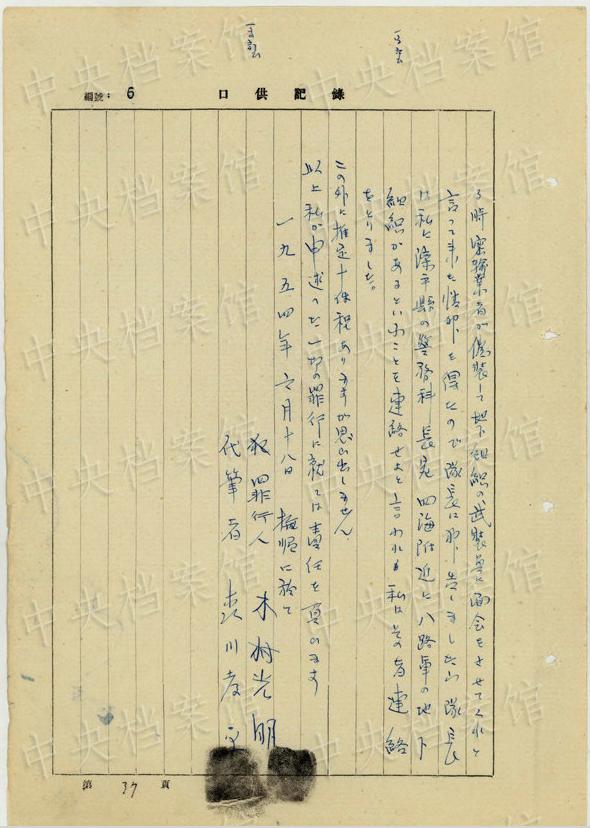 編號: 6
口供記錄
る時密輸業者が偽装して地下組織の武装員に面会をさせてくれと
言って来た情報を得たので隊長に報告しました 隊長
は私に灤平縣の警務科長宛 四海附近に八路軍の地下
組織があるということを連絡せよと言われ 私はその旨連絡
をとりました。
この外に推定十件程ありますが思い出しません
以上私が申述べた一切の罪行に就ては責任を負います
一九五四年六月十八日 撫順に於て
罪行人 木村光明
代筆者 川孝
第 37 頁
中央档案馆